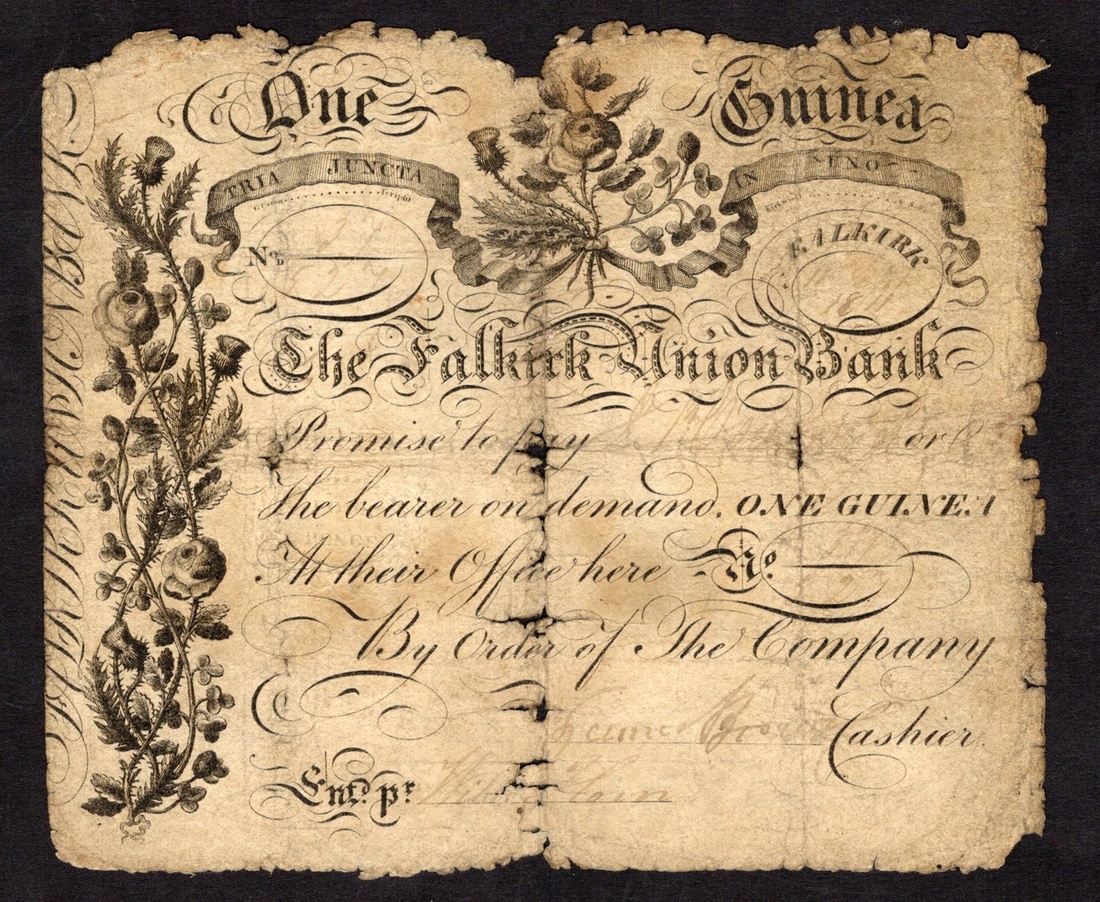 One Guinea
TRIA JUNCTA IN UNO
No.
FALKIRK
The Falkirk Union Bank
Promise to pay or
the bearer on demand, ONE GUINEA
At their Office here No.
By Order of The Company
Cashier.
Entd. pr.
FALKIRK UNION BANK